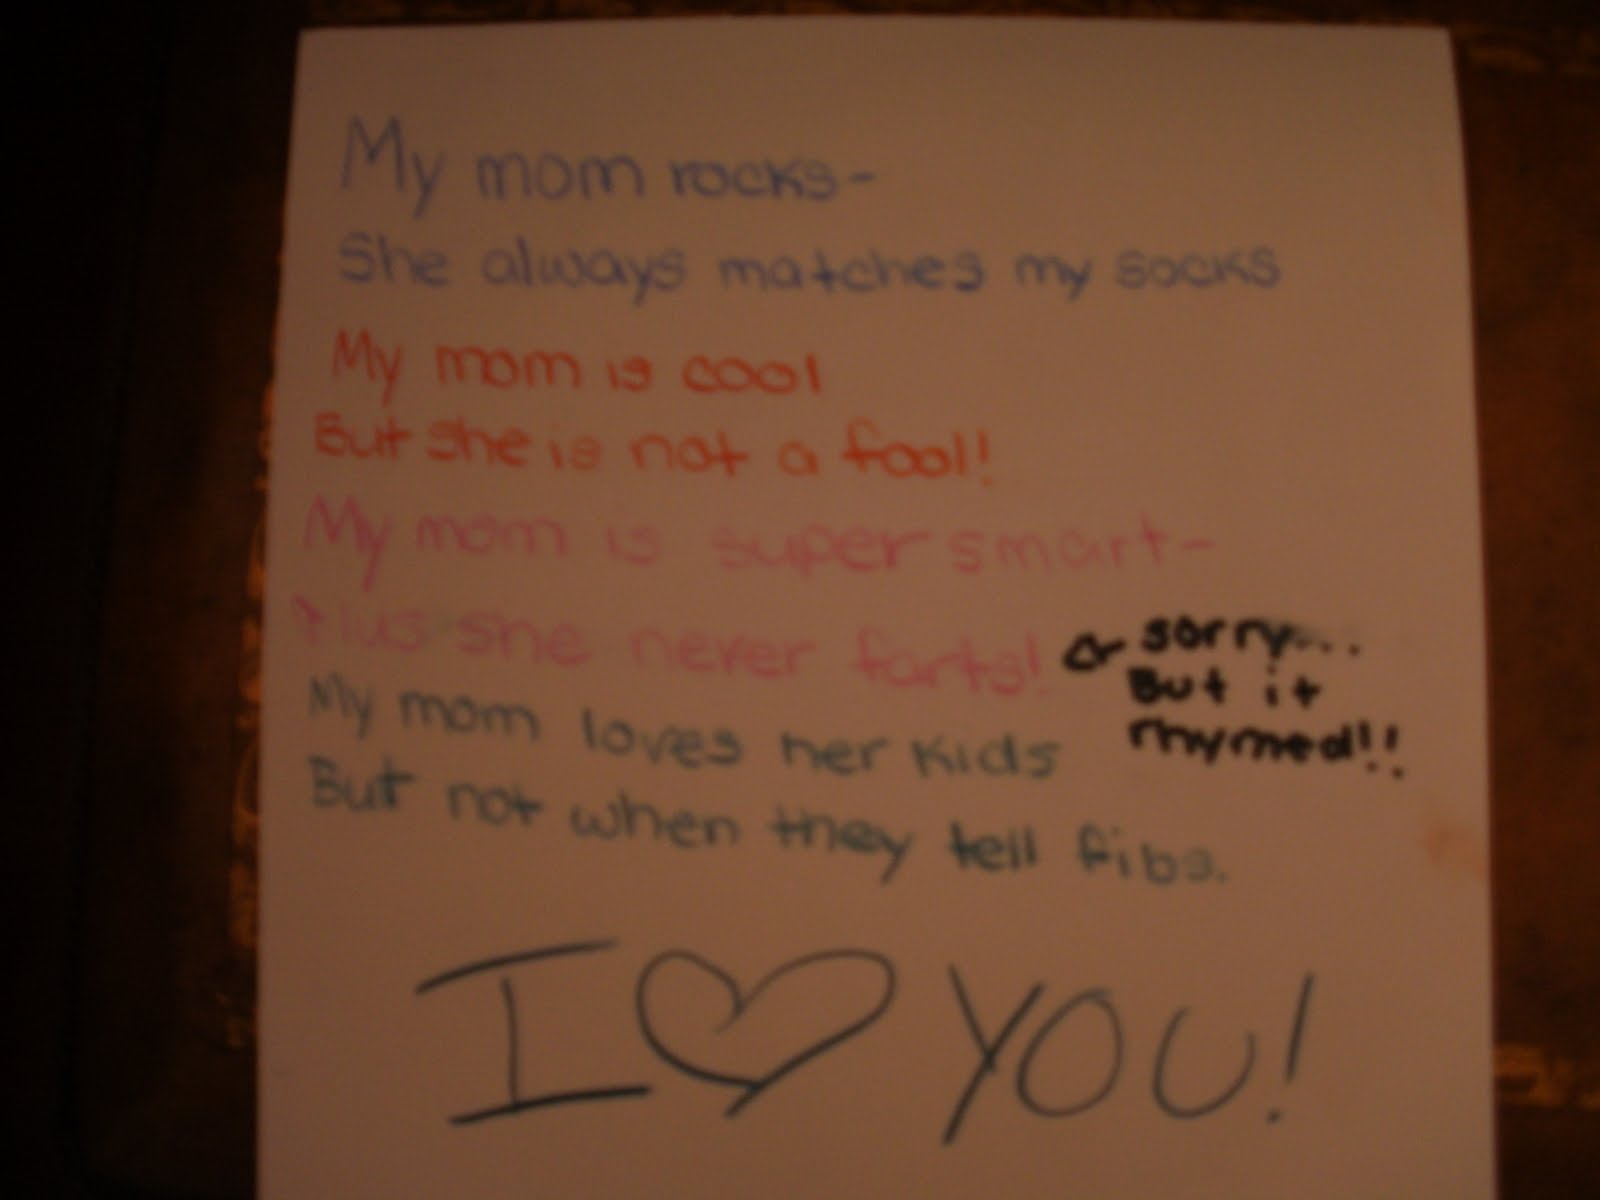 My mom rocks-
She always matches my socks
My mom is cool
But she is not a fool!
My mom is super smart-
Plus she never farts!
sorry...
But it
rhymed!!
My mom loves her kids
But not when they tell fibs.
I ♡ YOU!